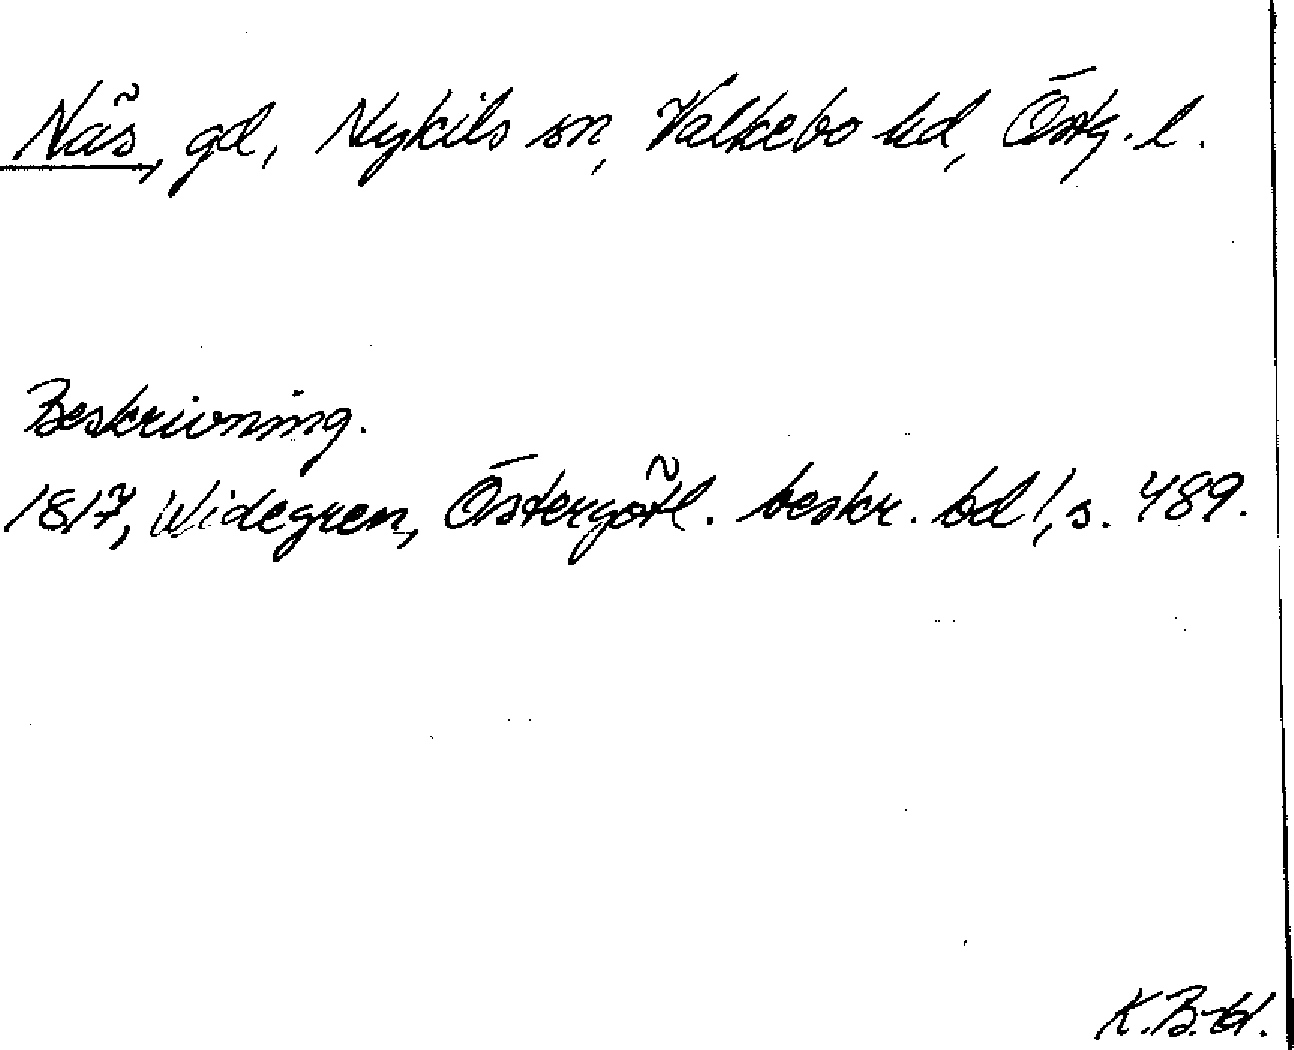 Näs, gd, Nykils sn, Valkebo hd, Östg. l.
Beskrivning.
1817, Widegren, Östergötl. beskr. bd 1, s. 489.